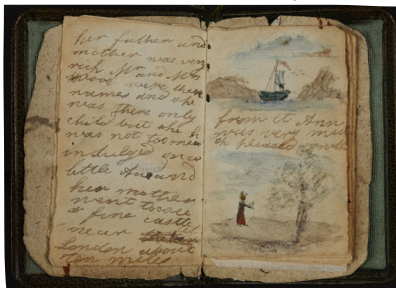 her father and
mother was very
rich Mr and Mrs
Wood were there
names and she
was there only
child but she
was not too much
indulged once
little Ane and
her mother
went to see
a fine castle
near
London about
ten miles
from it Ane
was very mu
ch pleased with